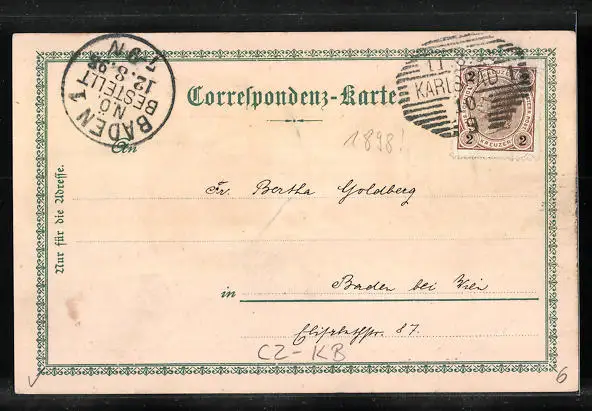 BADEN 1
N.Ö.
BESTELLT
12.8.98
KARLSBAD 1
11.8.
10
9
2 2
2 KREUZER 2
Correſpondenz-Karte
1898!
An
Fr. Bertha Goldberg
Nur für die Adresse.
in Baden bei Wien
Elisabethstr. 87.
CZ-KB
6